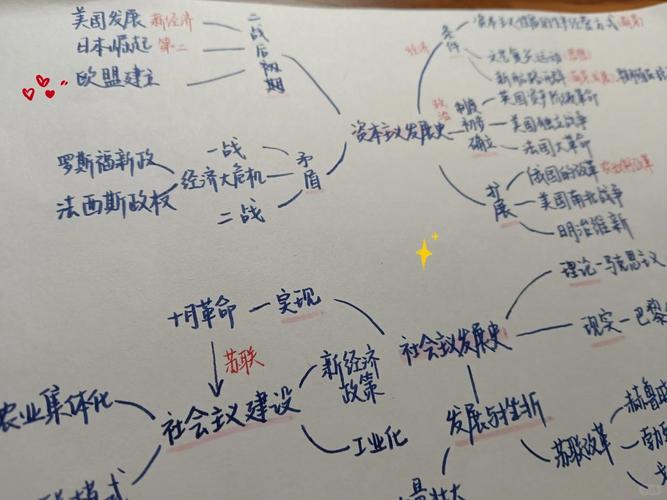 美国发展 新经济
日本崛起 第二
欧盟建立
二战后初期
资本主义发展史
经济
条件
文艺复兴运动
新航路
政治
制度初步确立
英国资产阶级革命
美国独立战争
法国大革命
扩展
俄国的改革
美国南北战争
明治维新
罗斯福新政
法西斯政权
一战
经济大危机
二战
矛盾
十月革命 一 实现
苏联
社会主义发展史
理论 一 马克思主义
现实 一 巴黎
农业集体化
社会主义建设
新经济政策
工业化
模式
发展与挫折
苏联改革
壮大